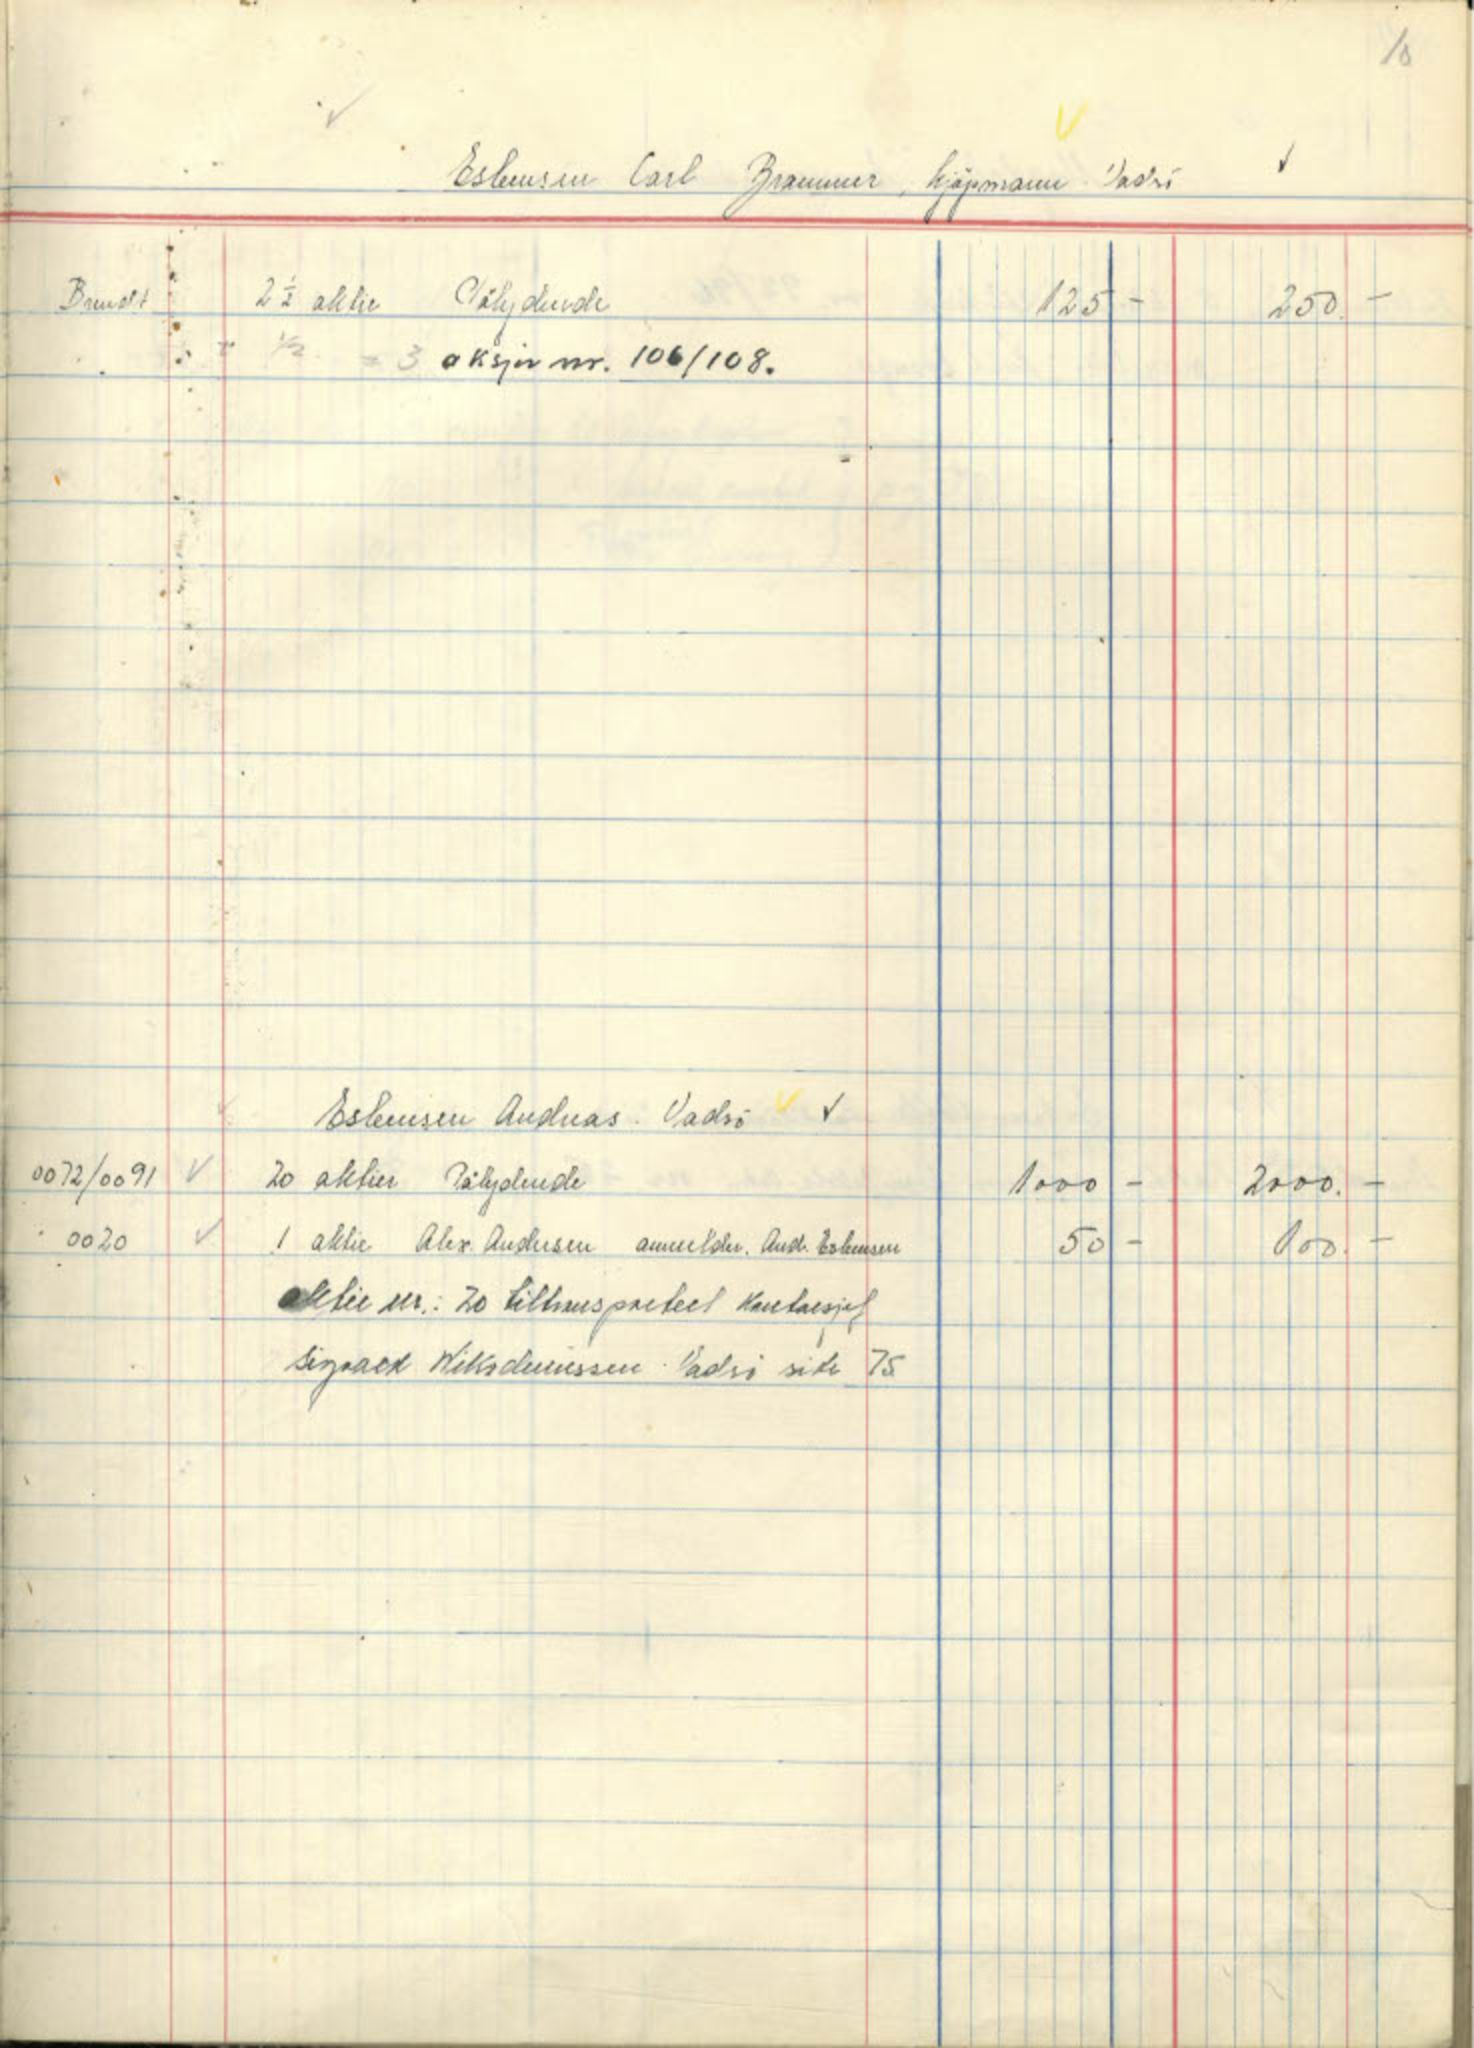 10
Esbensen Carl Brammer, kjøpmann. Vadsö
Brendt 2 ½ aktie Pålydende 125 - 250. -
+ ½ = 3 aksjer nr. 106/108.
Esbensen Andreas. Vadsö
0072/0091 20 aktier Pålydende 1000 - 2000. -
0020 1 aktie Alex. Andersen anmelder. And. Esbensen 50 - 100. -
aktie nr.: 20 til Kontorsjef
Sigvald Nikodemussen. Vadsö side 75